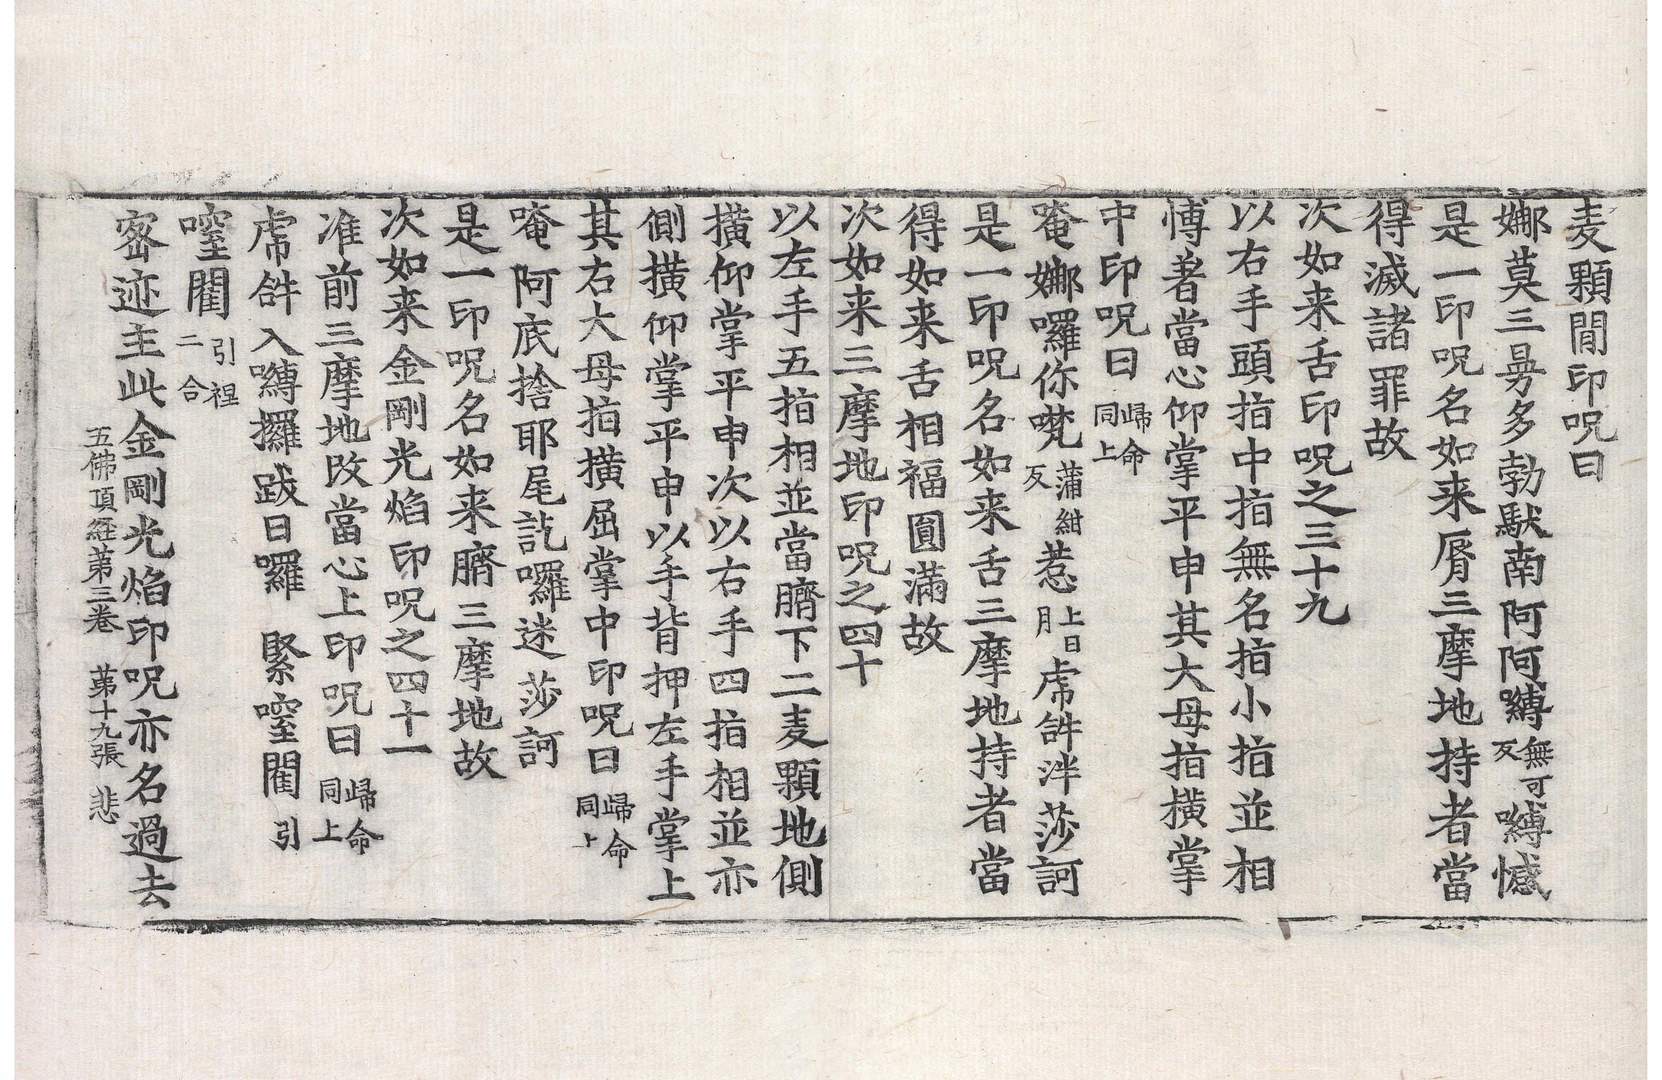 麦顆閒印呪曰
娜莫三曼多勃馱南阿阿嚩無可反嚩憾
是一印呪名如来脣三摩地持者當
得滅諸罪故
次如来舌印呪之三十九
以右手頭指中指無名指小指並相
愽著當心仰掌平申其大母指橫掌
中印呪曰歸命同上
唵娜囉你㘕蒲紺反惹上日月虎𤙖泮莎訶
是一印呪名如来舌三摩地持者當
得如来舌相福圓滿故
次如来三摩地印呪之四十
以左手五指相並當臍下二麦顆地側
橫仰掌平申次以右手四指相並亦
側橫仰掌平申以手背押左手掌上
其右大母指橫屈掌中印呪曰歸命同上
唵阿底捨耶尾訖囉迷莎訶
是一印呪名如来臍三摩地故
次如来金剛光焰印呪之四十一
准前三摩地改當心上印呪曰歸命同上
虎𤙖入嚩攞跋日囉緊㗌闍引
㗌闍引裎二合
密迹主此金剛光焰印呪亦名過去
五佛頂経苐三卷 苐十九張 悲